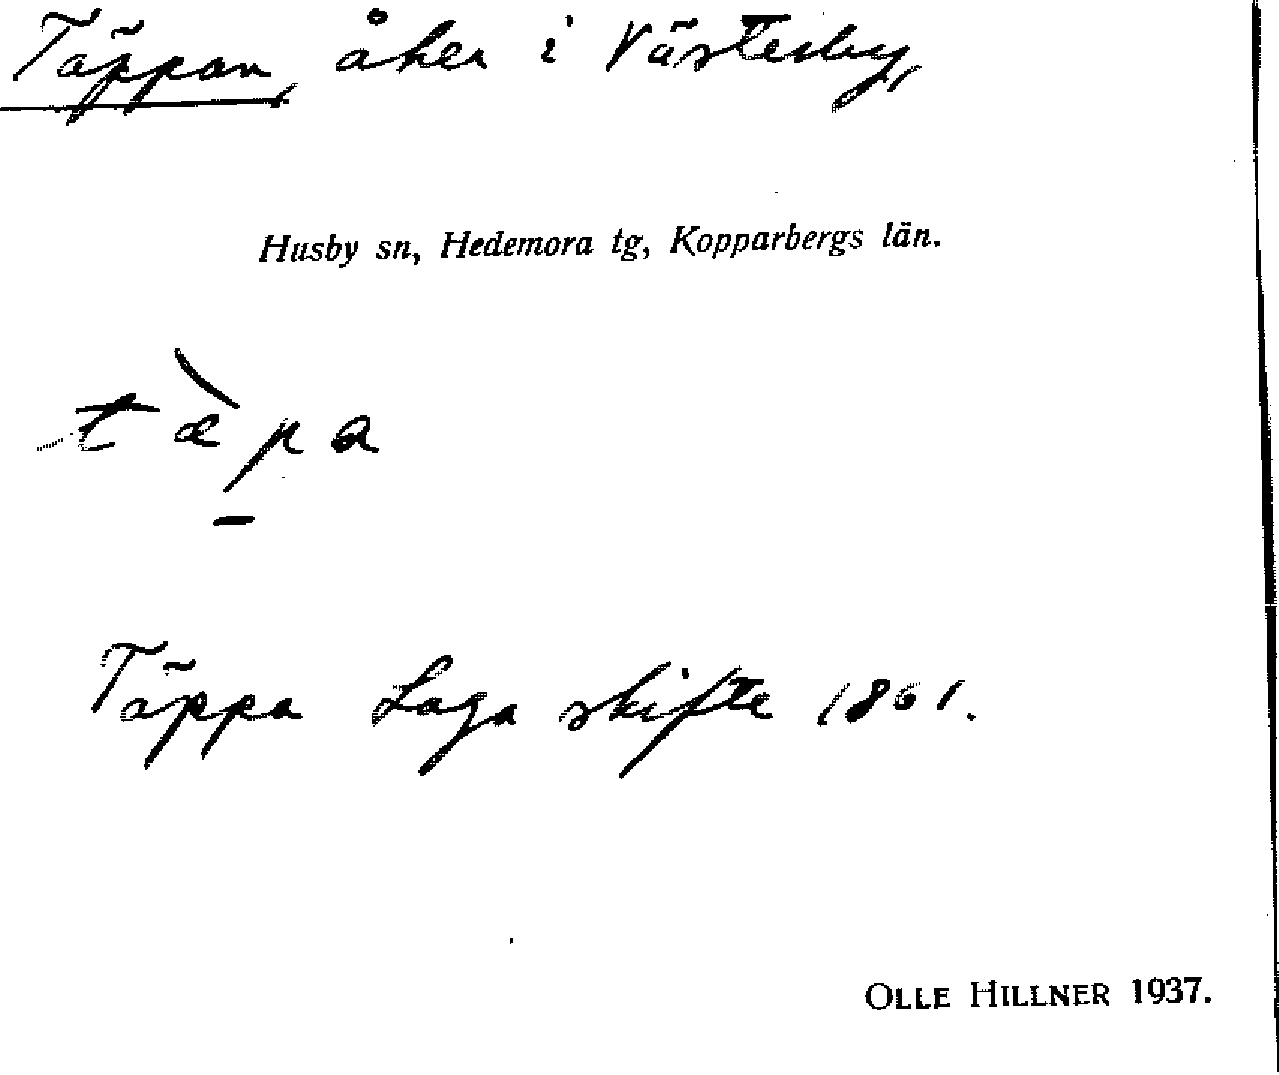 Täppan, åker i Västerby,
Husby sn, Hedemora tg, Kopparbergs län.
tæ̀p̠a
Täppa Laga skifte 1861.
OLLE HILLNER 1937.